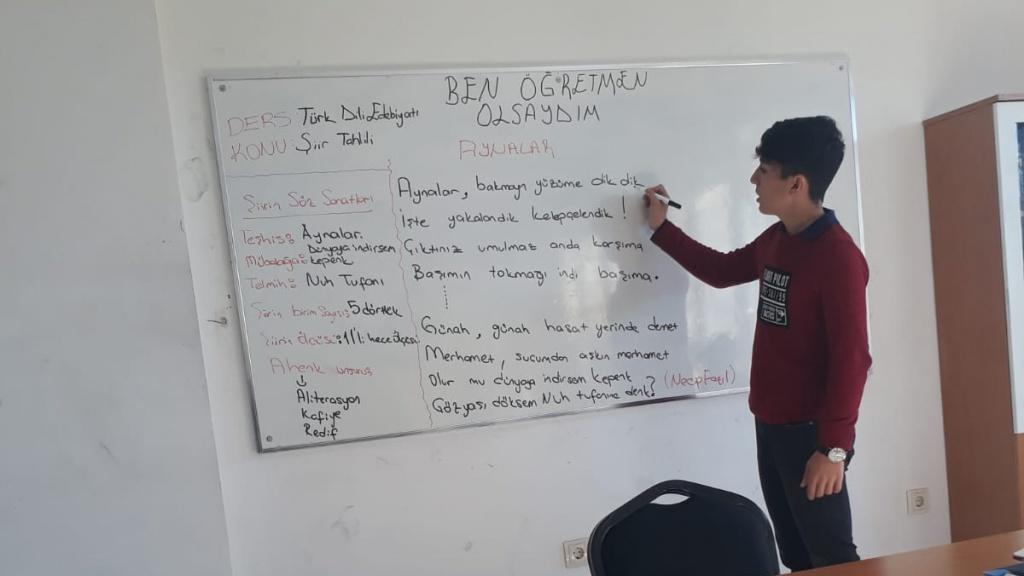 BEN ÖĞRETMEN
OLSAYDIM
DERS: Türk Dili Edebiyatı
KONU: Şiir Tahlili
AYNALAR
Şiirin Söz Sanatları
Teşhis: Aynalar
Dünyaya indirsem
Mübalağa: kepenk
Telmih: Nuh Tufanı
Şiirin birim Sayısı: 5 dörtlük
Şiirin ölçüsü: 11'li hece ölçüsü
Ahenk unsuru
Aliterasyon
Kafiye
Redif
Aynalar, bakmayın yüzüme dik dik
İşte yakalandık kelepçelendik!
Çıktınız umulmaz anda karşıma
Başımın tokmağı indi başıma.
Günah, günah hasat yerinde demet
Merhamet, suçumdan aşkın merhamet
Olur mu dünyaya indirsem kepenk
Gözyaşı döksem Nuh tufanına denk? (Necip Fazıl)
PILOT